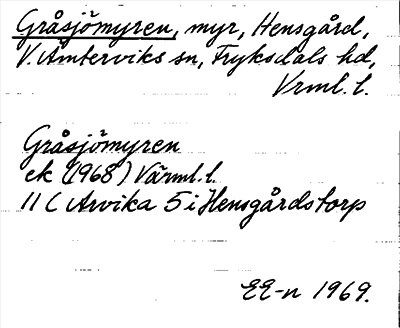 Gråsjömyren, myr, Hensgård,
V. Ämterviks sn, Fryksdals hd,
Vrml. l.
Gråsjömyren
ek (1968) Värml. l.
11 C Arvika 5 i Hensgårdstorp
EE-n 1969.